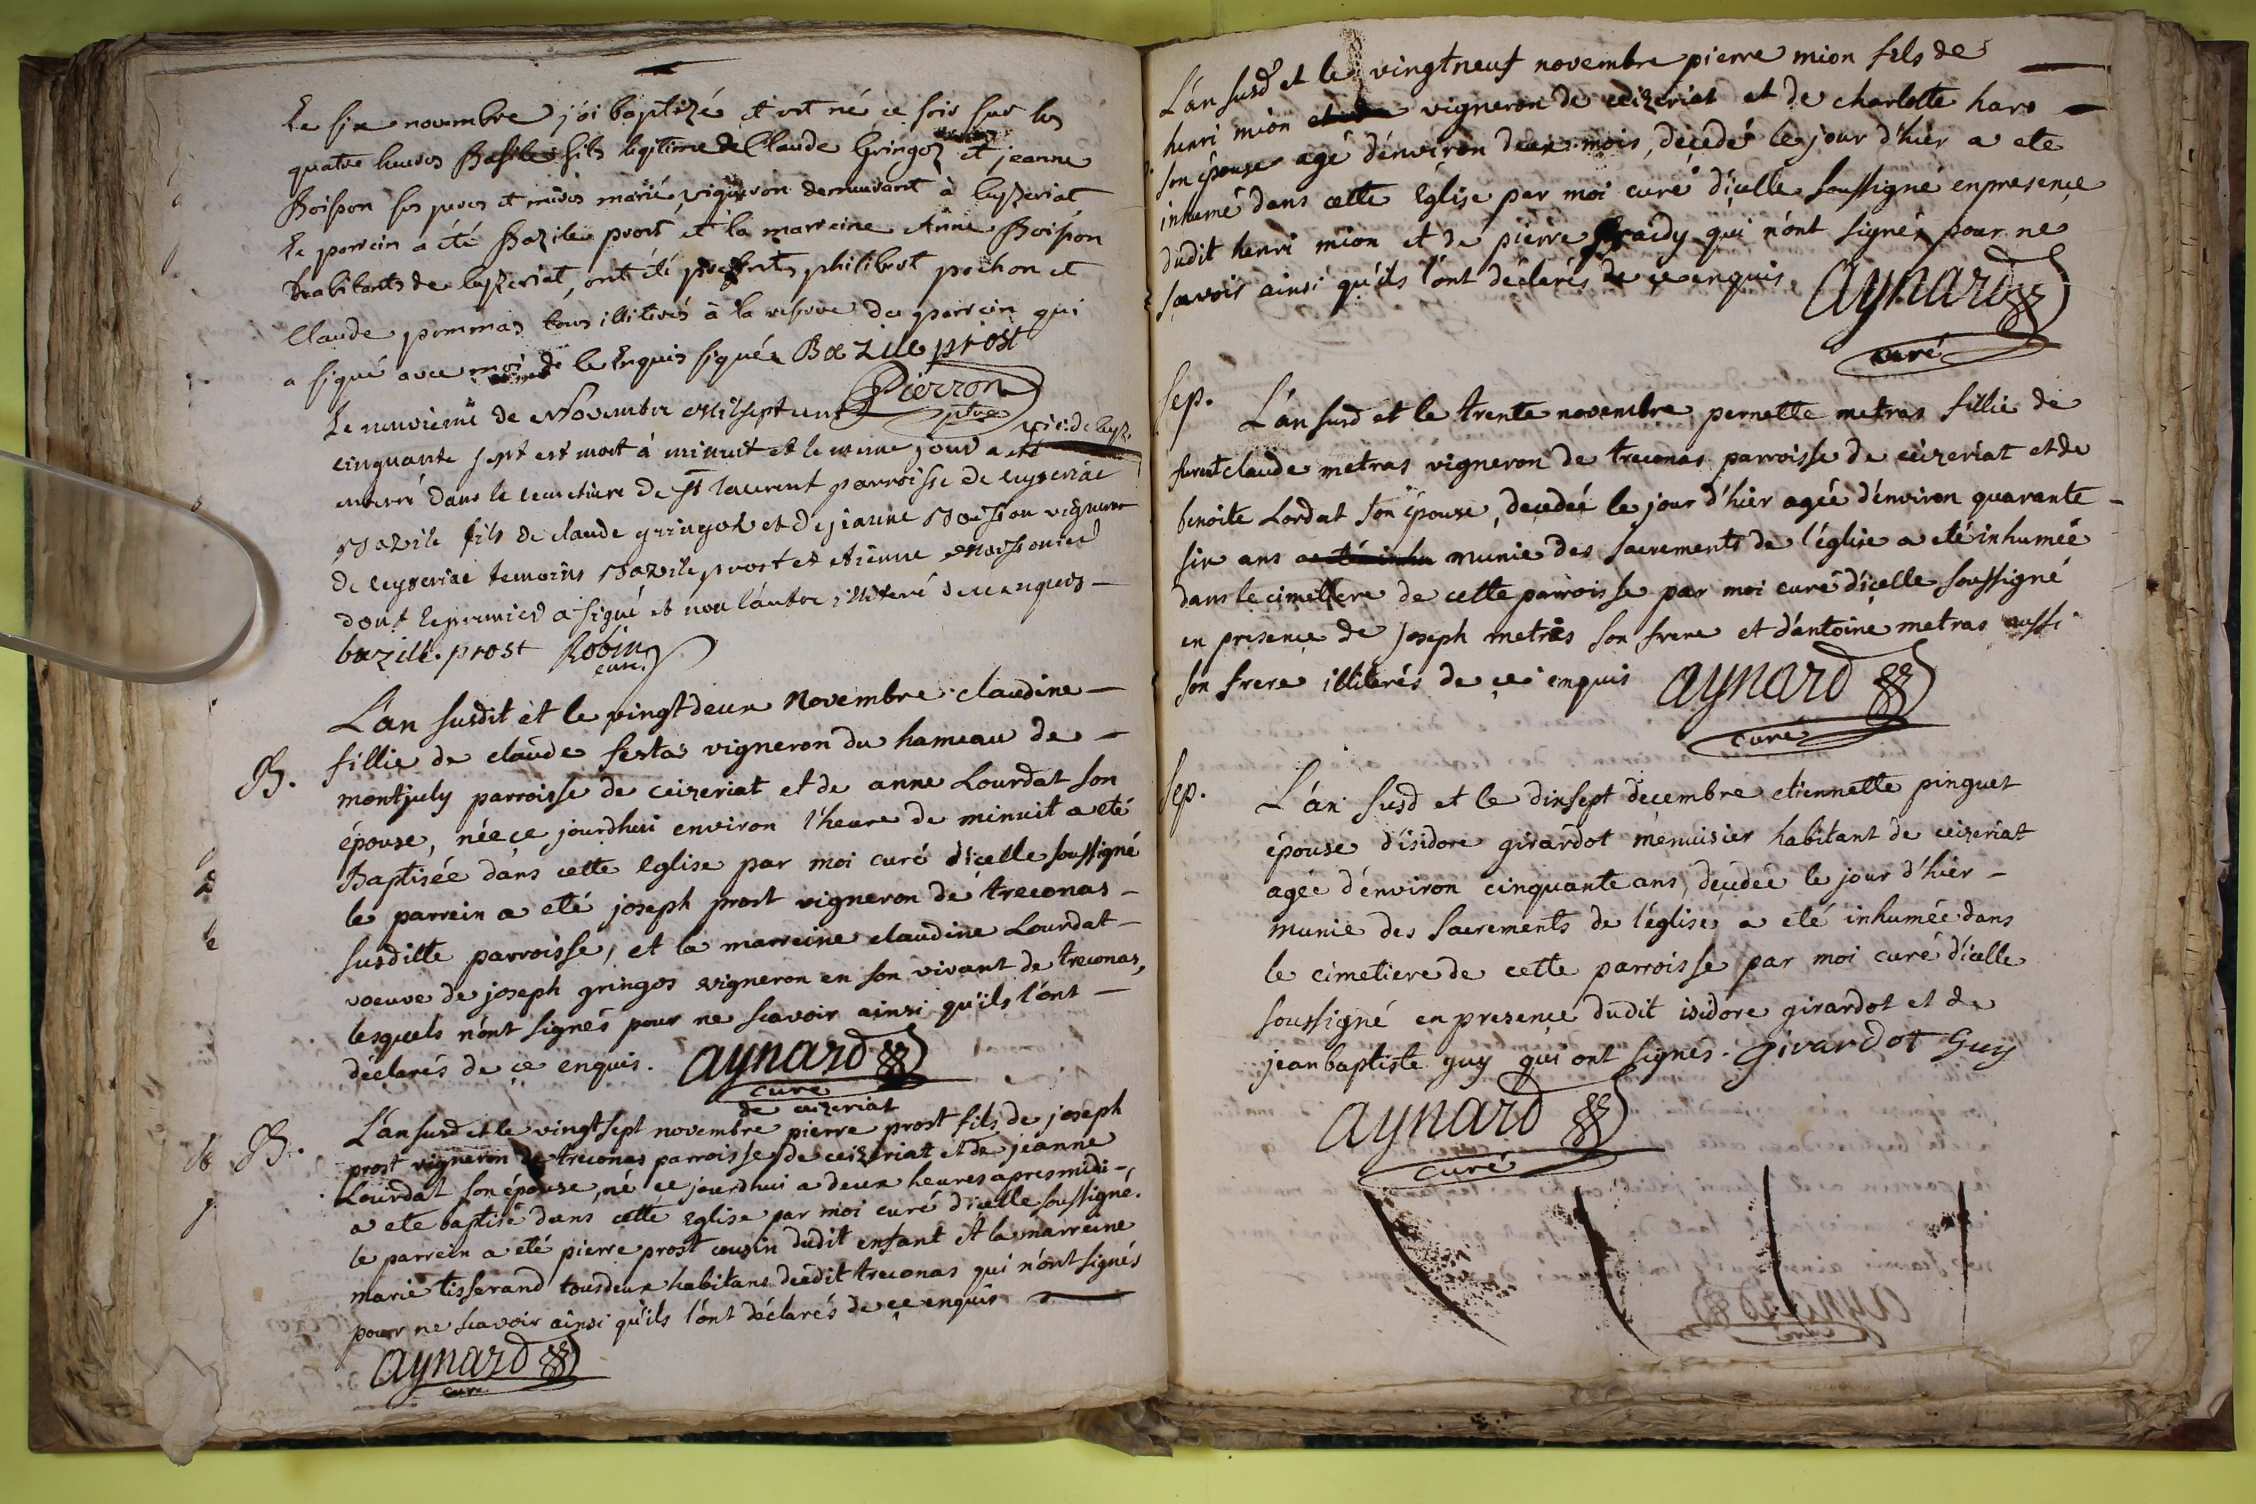 Le six novembre j'ai baptizé et est né ce soir sur les
quatre heures Basile fils legitime de Claude Gringoz et jeanne
Boisson ses peres et meres mariés, vigneron demeurant à ceyzeriat
Le parrein a été Bazile prost et la marreine Anne Boisson
habitants de ceyzeriat, ont été presents philibert pochon et
Claude pommas tous illiterés à la reserve du parrein qui
a signé avec moi de ce Enquis signée Bazile prost
Pierron
ptre
vic: de ceyz.
Le neuvieme de Novembre mil sept cent
cinquante sept est mort à minuit et le même jour a eté
enterré dans le cemetiere de St laurent parroisse de ceyzeriac
Bazile fils de claude gringoz et de jeanne Boisson vigneron
de ceyzeriac temoins Bazile prost et Etienne
dont le premier a signé et non l'autre illiteré de ce enquis
bazile. prost Robin
curé
L'an susdit et le vingtdeux Novembre claudine
B. fillie de claude festas vigneron du hameau de
montjuly parroisse de ceizeriat et de anne Lourdat son
épouse, née ce jourdhui environ l'heure de minuit a eté
Baptisée dans cette eglise par moi curé dicelle soussigné
le parrein a eté joseph prost vigneron de treconas
susditte parroisse, et la marreine claudine Lourdat
voeuve de joseph gringos vigneron en son vivant de treconas,
lesquels n'ont signés pour ne scavoir ainsi qu'ils l'ont
déclarés de ce enquis. aynard
curé
de ceizeriat
B. L'an susd et le vingtsept novembre pierre prost fils de joseph
prost vigneron de treconas parroisse de ceizeriat et de jeanne
Lourdat son épouse, né ce jourdhui a deux heures apres midi
a ete baptisé dans cette eglise par moi curé dicelle soussigné.
le parrein a eté pierre prost cousin dudit enfant et la marreine
marie tisserand tousdeux habitans dudit treconas qui n'ont signés
pour ne scavoir ainsi qu'ils l'ont déclarés de ce enquis
aynard
curé
L'an susd et le vingtneuf novembre pierre mion fils de
henri mion vigneron de ceizeriat et de charlotte haro
son épouse agé d'environ deux mois, décedé le jour d'hier a ete
inhumé dans cette Eglise par moi curé d'icelle soussigné en presence
dudit henri mion et de pierre qui n'ont signés pour ne
scavoir ainsi qu'ils l'ont déclarés de ce enquis aynard
curé
Sep. L'an susd et le trente novembre pernette metras fillie de
claude metras vigneron de treconas parroisse de ceizeriat et de
benoite Lordat son épouse, decedée le jour d'hier agée d'environ quarante
six ans munie des sacrements de l'église a eté inhumée
dans le cimetiere de cette parroisse par moi curé d'icelle soussigné
en presence de Joseph metras son frere et d'antoine metras aussi
son frere illiterés de ce enquis aynard
curé
Sep. L'an susd et le dixsept decembre etiennette pinguet
épouse d'isidore girardot menuisier habitant de ceizeriat
agée d'environ cinquante ans, decedée le jour d'hier
munie des sacrements de l'église a eté inhumée dans
le cimetiere de cette parroisse par moi curé d'icelle
soussigné en presence dudit isidore girardot et de
jean baptiste guy qui ont signés. Girardot Guy
aynard
curé